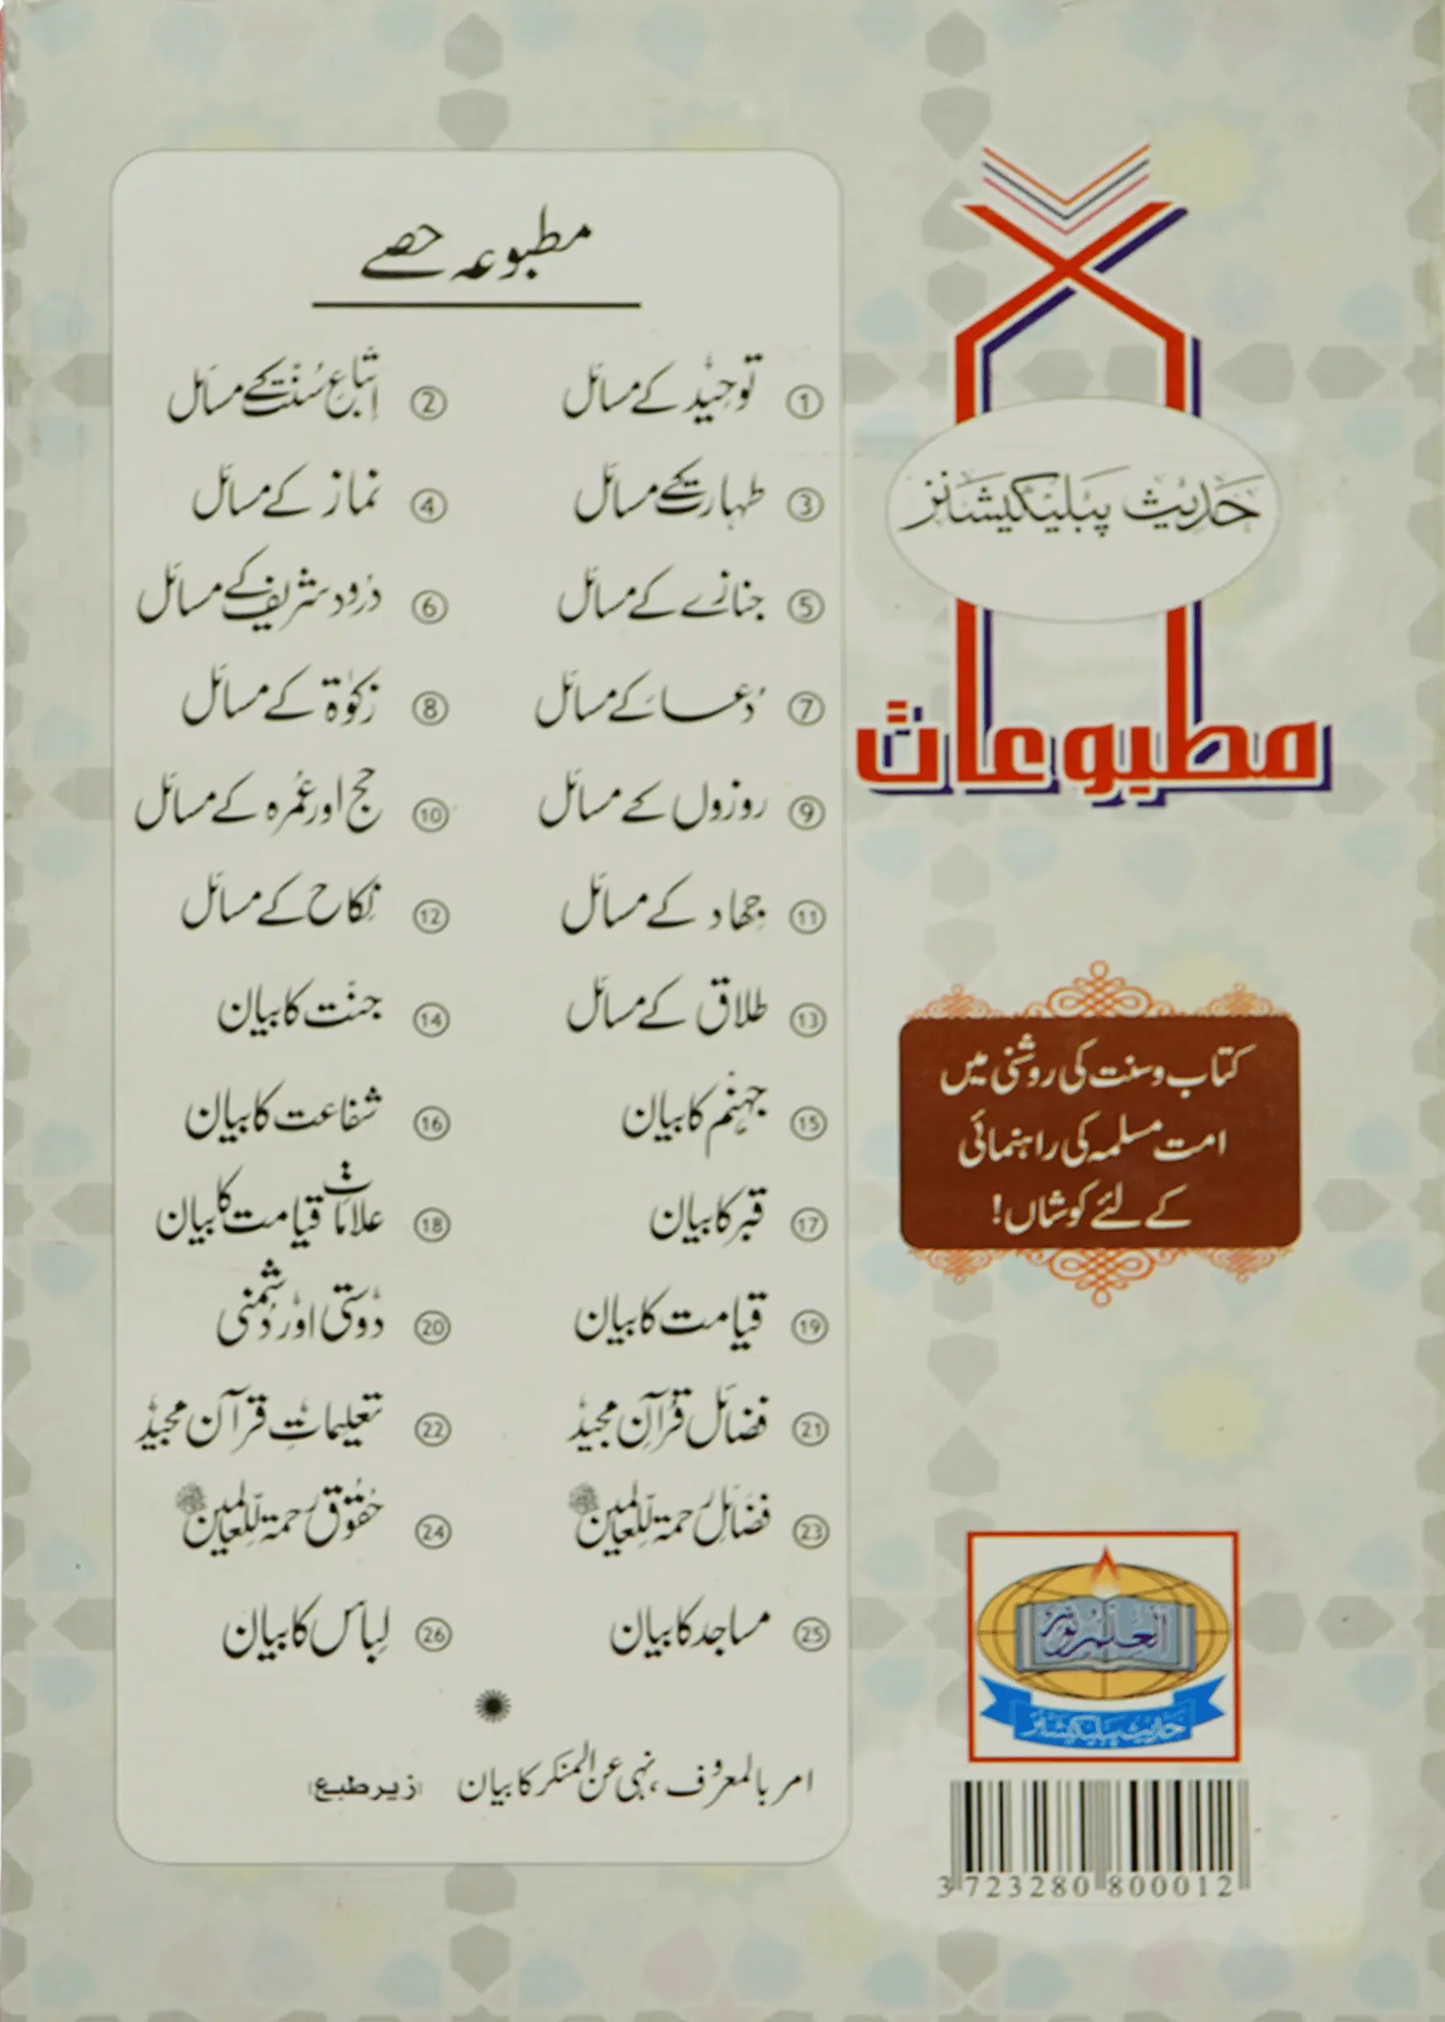 حدیث پبلیکیشنز
مطبوعات
کتاب و سنت کی روشنی میں
امت مسلمہ کی راہنمائی
کے لئے کوشاں!
العلم نور
حدیث پبلیکیشنز
3 723280 800012
مطبوعہ حصے
① توحید کے مسائل ② اتباعِ سُنّت کے مسائل
③ طہارت کے مسائل ④ نماز کے مسائل
⑤ جنازے کے مسائل ⑥ درود شریف کے مسائل
⑦ دُعا کے مسائل ⑧ زکوٰۃ کے مسائل
⑨ روزوں کے مسائل ⑩ حج اور عُمرہ کے مسائل
⑪ جہاد کے مسائل ⑫ نکاح کے مسائل
⑬ طلاق کے مسائل ⑭ جنّت کا بیان
⑮ جہنّم کا بیان ⑯ شفاعت کا بیان
⑰ قبر کا بیان ⑱ علاماتِ قیامت کا بیان
⑲ قیامت کا بیان ⑳ دوستی اور دشمنی
㉑ فضائل قرآن مجید ㉒ تعلیماتِ قرآن مجید
㉓ فضائل رحمۃ للعالمین ﷺ ㉔ حقوق رحمۃ للعالمین ﷺ
㉕ مساجد کا بیان ㉖ لباس کا بیان
امر بالمعروف، نہی عن المنکر کا بیان (زیر طبع)